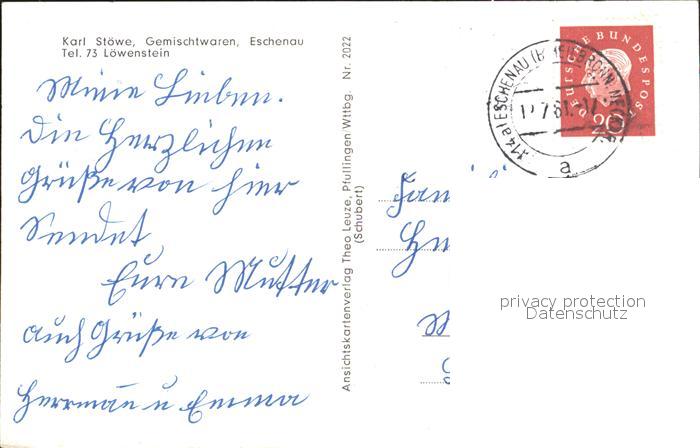 Karl Stöwe, Gemischtwaren, Eschenau
Tel. 73 Löwenstein
Meine Lieben.
Die Herzlichen
Grüße von hier
Sendet
Eure Mutter
auch Grüße von
Hermann u Emma
Ansichtskartenverlag Theo Leuze, Pfullingen/Wttbg. Nr. 2022
(Schubert)
DEUTSCHE BUNDESPOST
20
ESCHENAU
a
Fam
privacy protection
Datenschutz